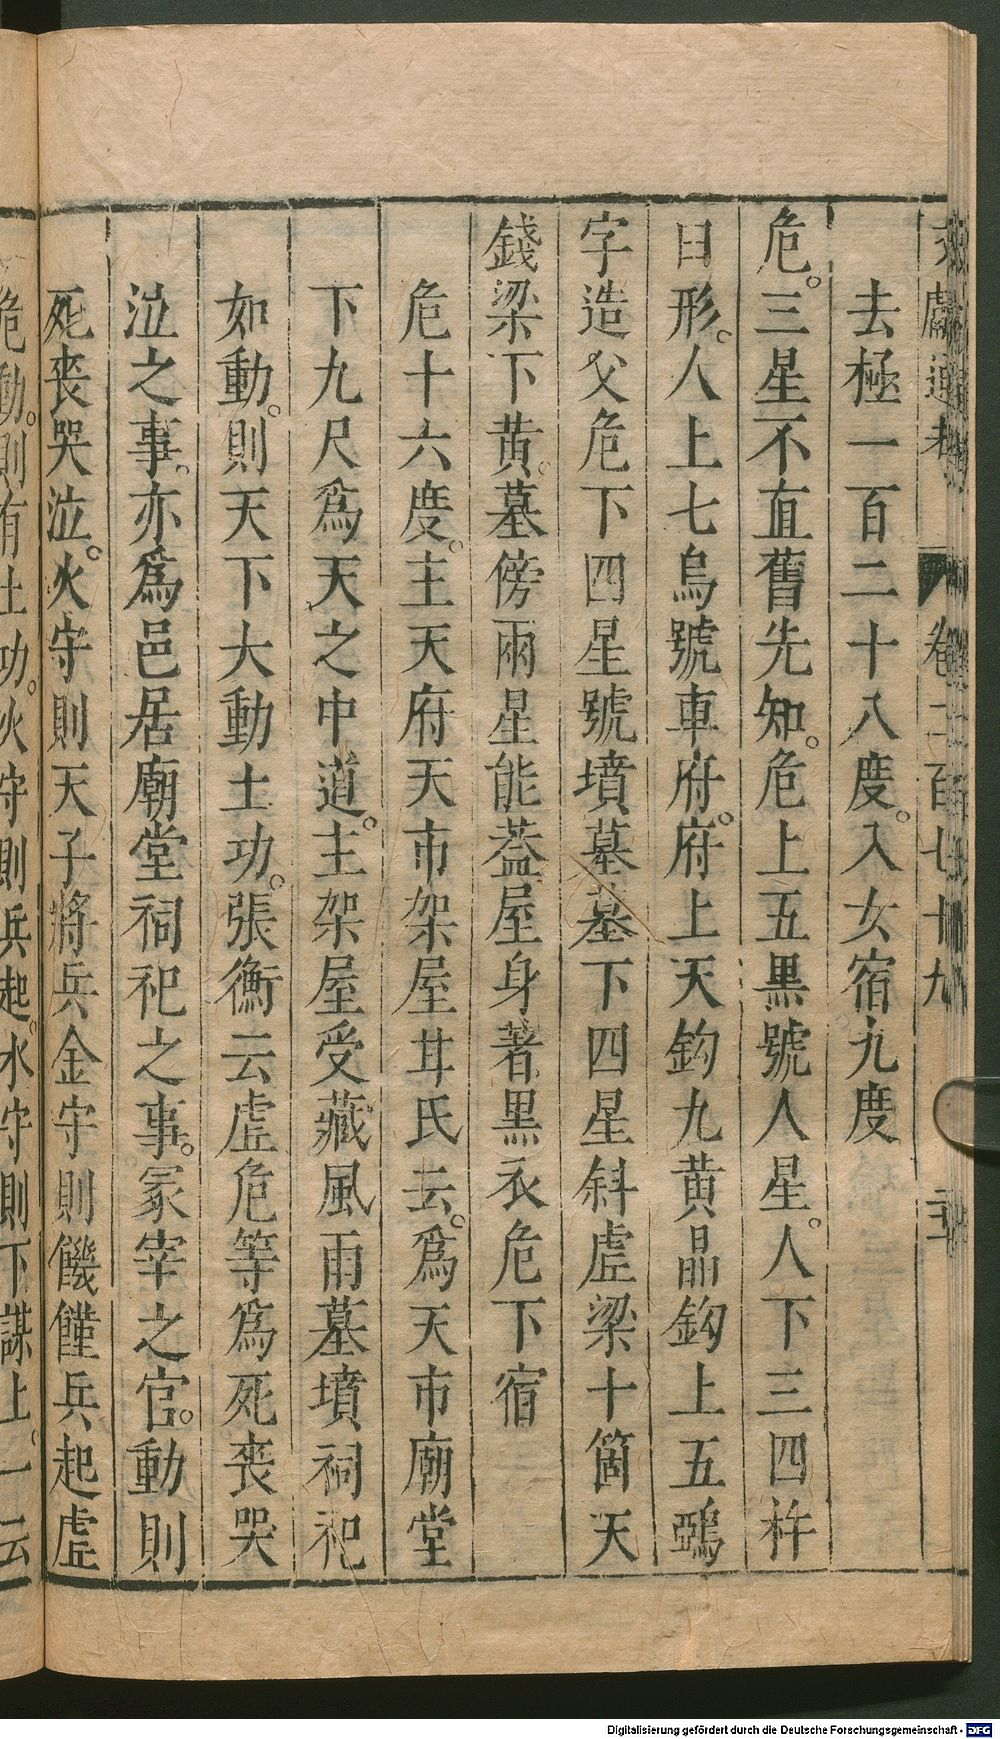 去極一百二十八度。入女宿九度
危。三星不直舊先知。危上五黑號人星。人下三四杵
臼形。人上七烏號車府。府上天鈎九黃晶鈎上五鵶
字造父危下四星號墳墓墓下四星斜虛梁十箇天
錢梁下黃。墓傍兩星能葢屋身著黑衣危下宿
危十六度。主天府天市架屋甘氏云。爲天市廟堂
下九尺爲天之中道。主架屋受藏風雨墓墳祠祀
如動。則天下大動土功。張衡云虛危等爲死喪哭
泣之事。亦爲邑居廟堂祠祀之事。冢宰之官。動則
死喪哭泣。火守則天子將兵金守則饑饉兵起虛
危動。則有土功。火守則兵起。水守則下謀上。一云
卷二百七十九
Digitalisierung gefördert durch die Deutsche Forschungsgemeinschaft - DFG